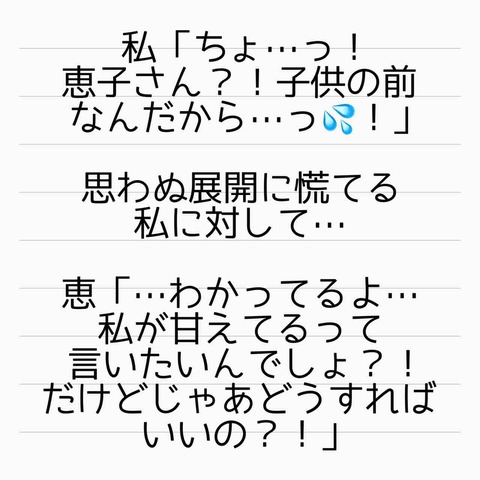 私「ちょ…っ！
恵子さん？！子供の前
なんだから…っ💦！」
思わぬ展開に慌てる
私に対して…
恵「…わかってるよ…
私が甘えてるって
言いたいんでしょ？！
だけどじゃあどうすれば
いいの？！」